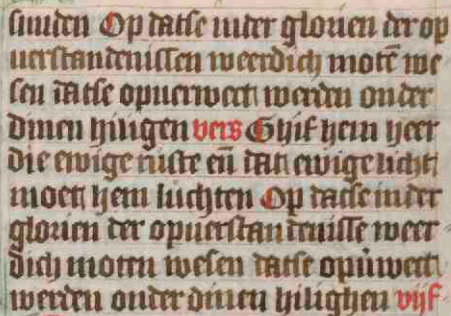 sunden Op datse inder glorien der op
uerstandenissen weerdich motē we
sen datse opuerwect werden onder
dinen hiligen vers Ghif hem heer
die ewige ruste eñ dat ewige licht
moet hem luchten Op datse inder
glorien der opuerstandenisse weer
dich moten wesen datse opůwect
werden onder dinen hilighen vijf